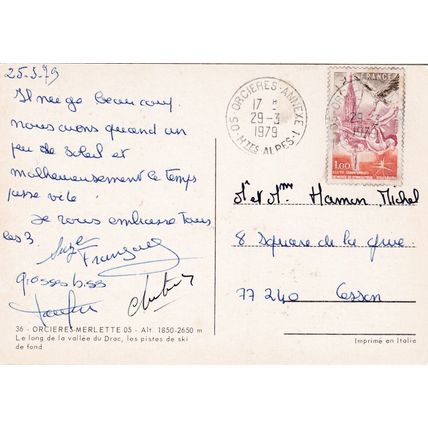 25-3-79
Il neige beaucoup
nous avons quand un
peu de soleil et
malheureusement le temps
passe vite.
Je vous embrasse tous
les 3.
Suze
Françoise
grosses bises
36 - ORCIERES-MERLETTE 05 - Alt. 1850-2650 m
Le long de la vallée du Drac, les pistes de ski
de fond
05 ORCIERES-ANNEXE 1
17 H
29-3
1979
HTES ALPES
FRANCE
1,00
29-3
1979
Mr et Mme Hamon Michel
8 Square de la
77240 Cesson
Imprimé en Italie